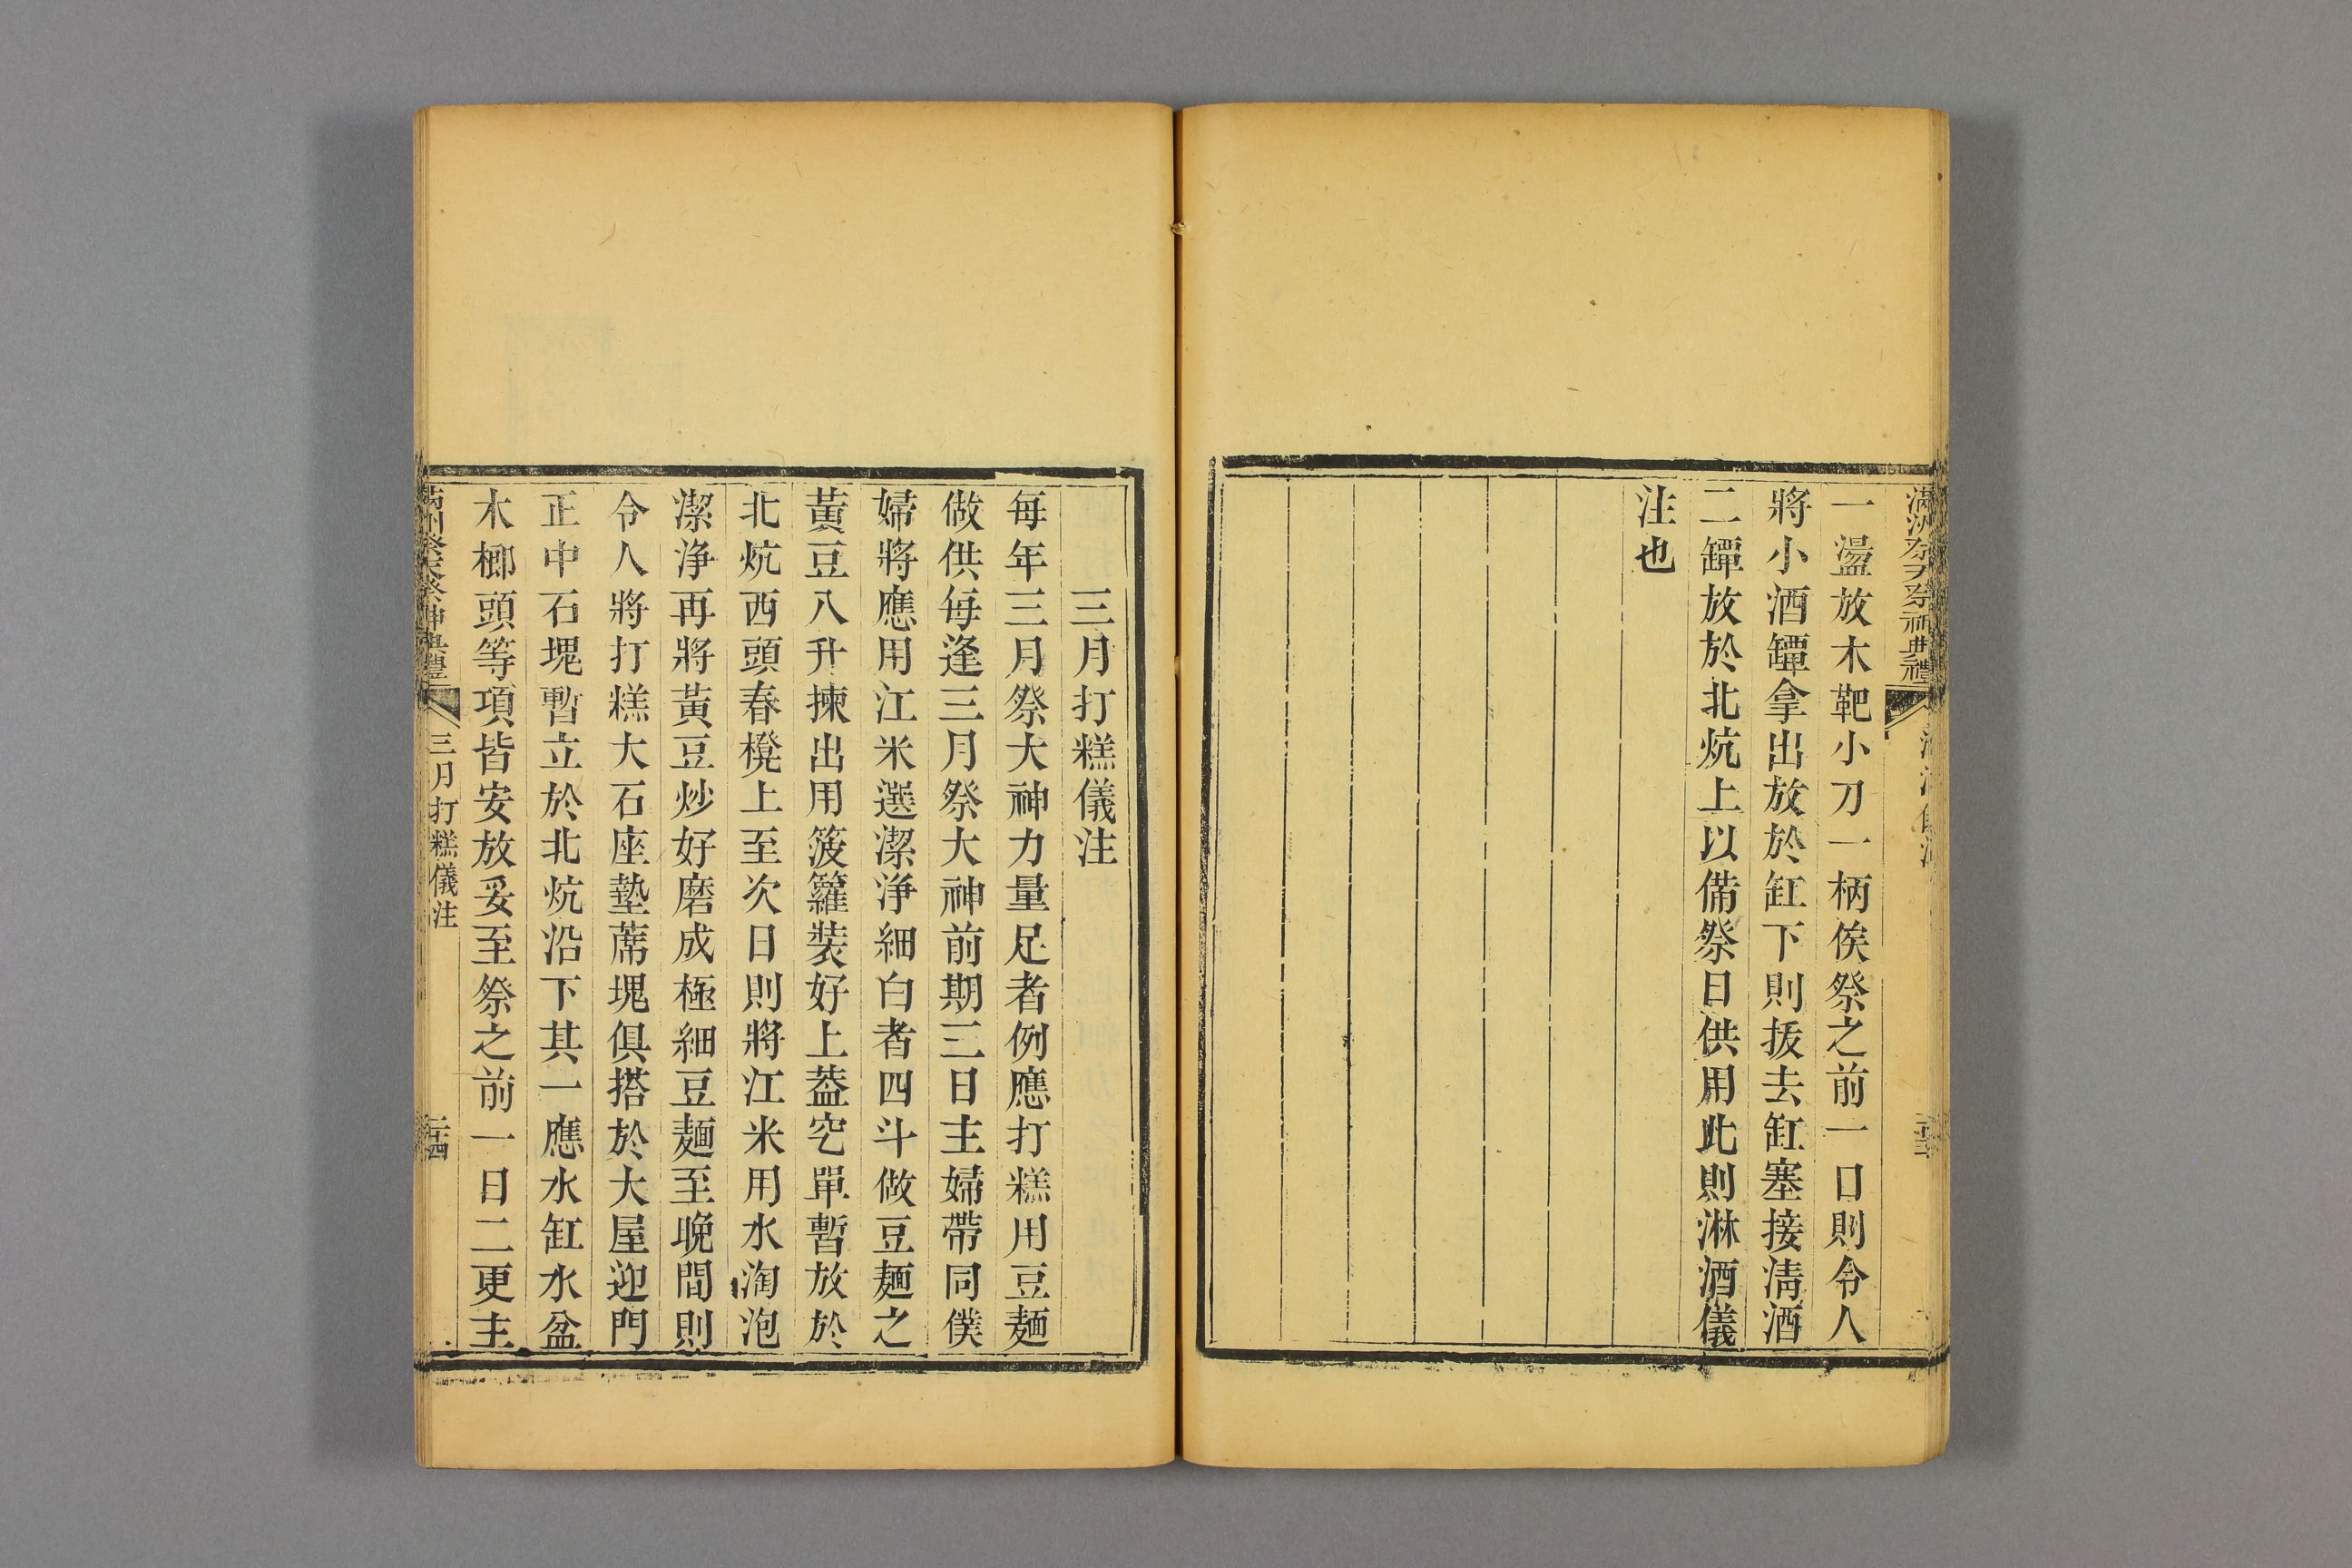 滿洲祭天祭神典禮
一盪放木靶小刀一柄俟祭之前一口則令人
將小酒罈拿出放於缸下則拔去缸塞接清酒
二罈放於北炕上以備祭日供用此則淋酒儀
注也
三月打糕儀注
每年三月祭大神力量足者例應打糕用豆麵
做供每逢三月祭大神前期三日主婦帶同僕
婦將應用江米選潔淨細白者四斗做豆麵之
黃豆八升揀出用簸籮裝好上蓋空單暫放於
北炕西頭春櫈上至次日則將江米用水淘泡
潔淨再將黃豆炒好磨成極細豆麵至晚間則
令人將打糕大石座墊蓆塊俱搭於大屋迎門
正中石塊暫立於北炕沿下其一應水缸水盆
木榔頭等項皆安放妥至祭之前一日二更主
滿洲祭天祭神典禮
三月打糕儀注
二十四